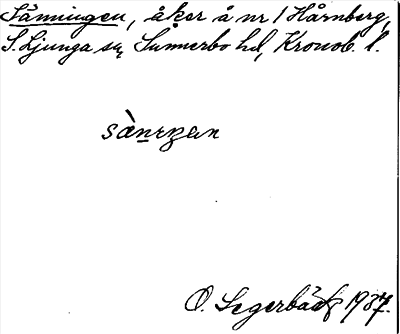 Sånningen, åker å nr 1 Hårnberg,
S. Ljunga sn, Sunnerbo hd, Kronob. l.
sànıŋen
O. Segerbäck 1937.